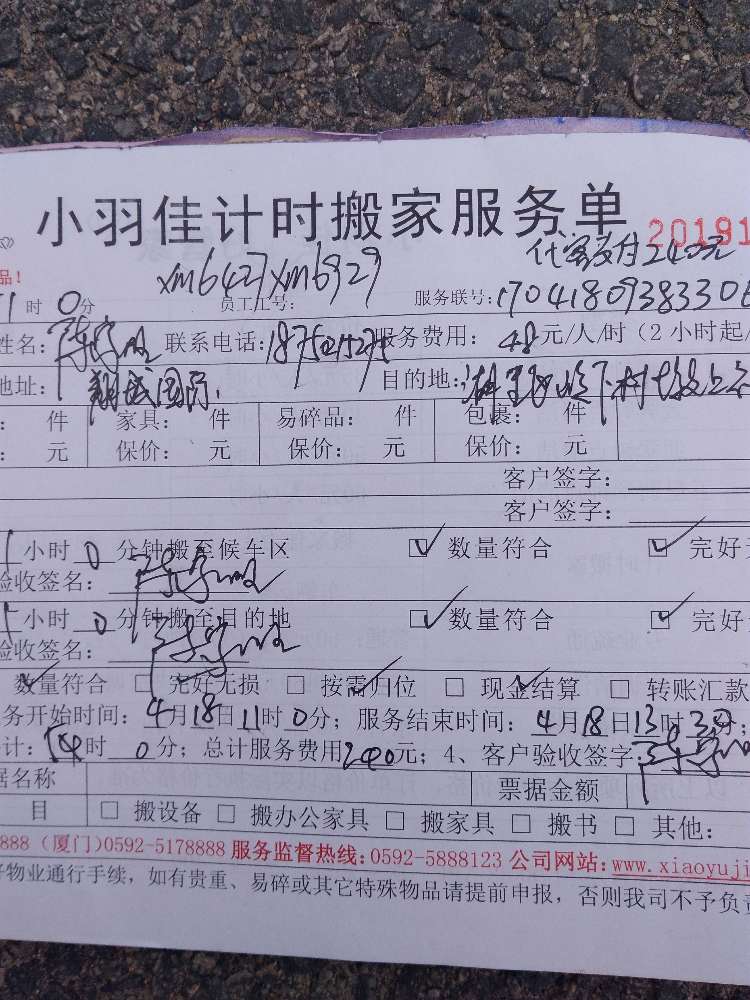 小羽佳计时搬家服务单
20191
代客支付240元
品！
xm6427xm6929
1时0分 员工工号： 服务联号：17041809383306
姓名： 联系电话： 服务费用：48元/人/时（2小时起/
地址：翔诚国际 目的地：
： 件 家具： 件 易碎品： 件 包裹： 件
： 元 保价： 元 保价： 元 保价： 元
客户签字：
客户签字：
1小时0分钟搬至候车区 ☑数量符合 ☑完好无
验收签名：
1小时0分钟搬至目的地 ☑数量符合 ☑完好无
验收签名：
数量符合 □完好无损 □按需归位 □现金结算 □转账汇款
务开始时间：4月18日11时0分；服务结束时间：4月18日13时30分；
计： 时0分；总计服务费用240元；4、客户验收签字：
据名称 票据金额
目 □搬设备 □搬办公家具 □搬家具 □搬书 □其他：
888 (厦门)0592-5178888 服务监督热线：0592-5888123 公司网站：www.xiaoyuji
好物业通行手续，如有贵重、易碎或其它特殊物品请提前申报，否则我司不予负责